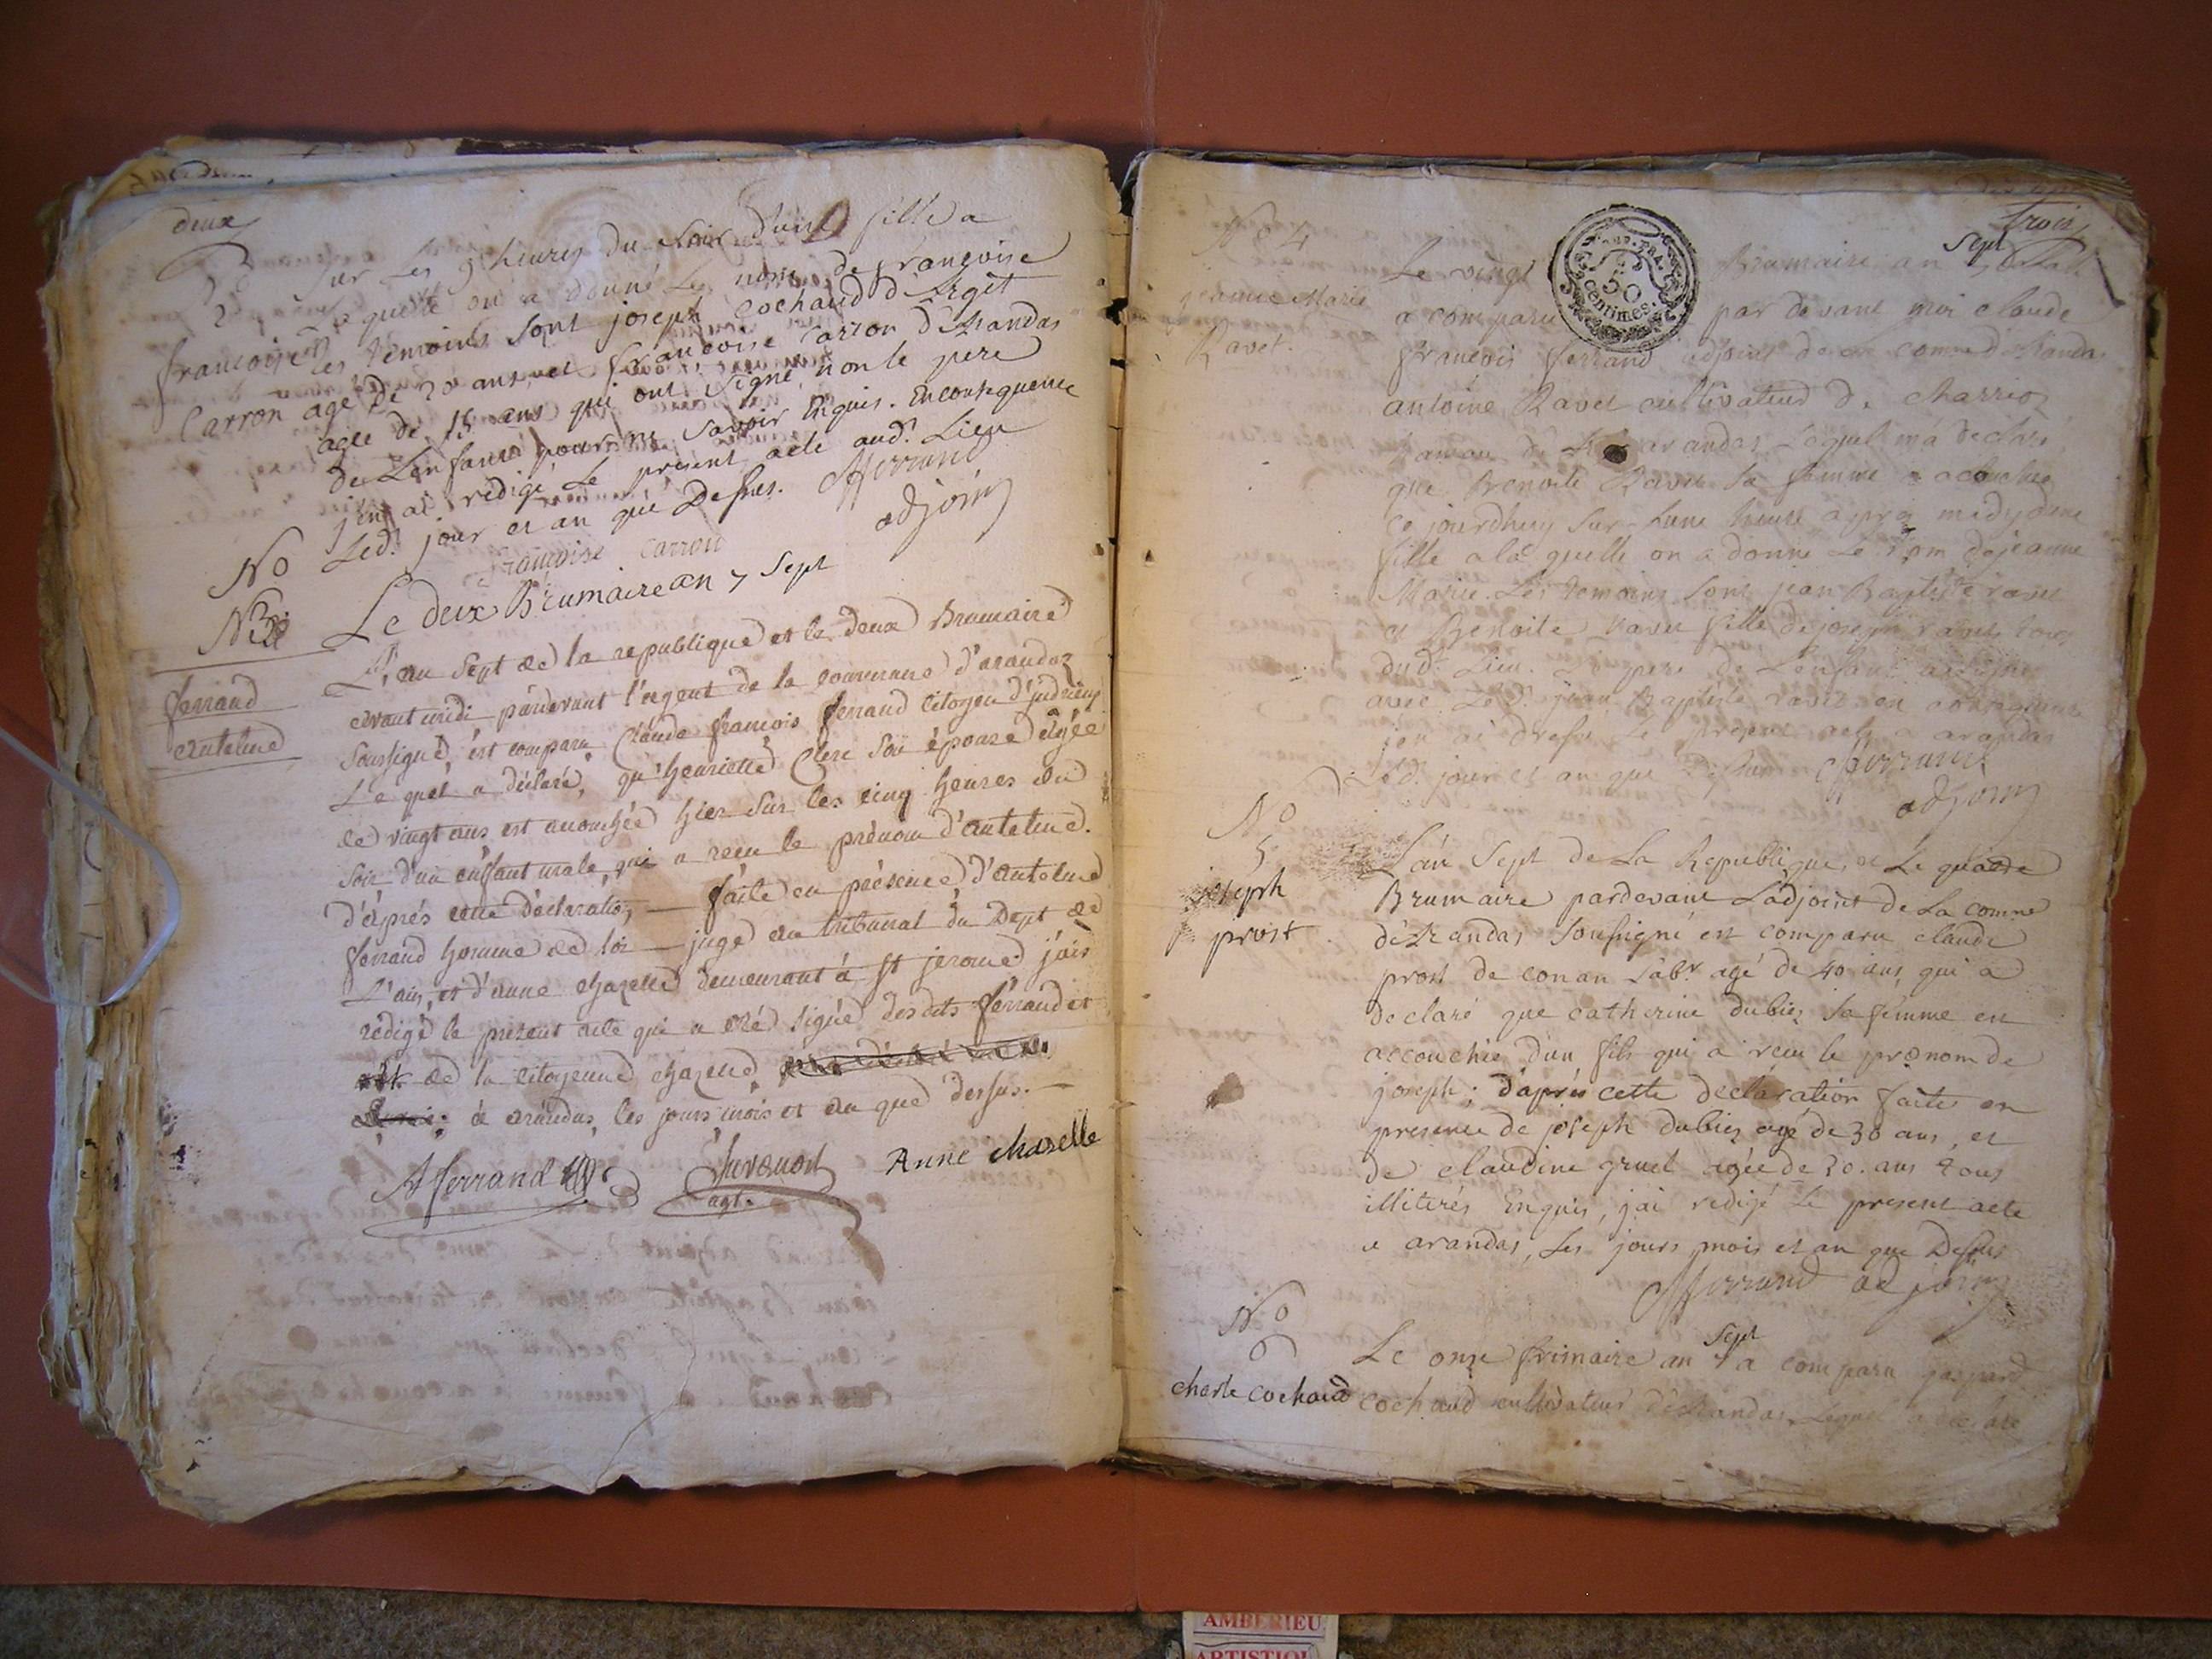 deux
sur les 9 heures du soir d'une fille a
quelle on a donné le nom de françoise
françoise les temoins sont joseph Cochaud d'Argit
Carron agé de 20 ans et françoise Carron d'Arandas
agee de 15 ans qui ont signé non le pere
de L'enfant pour ne savoir Enquis. En consequence
j'en ai redigé Le present acte aud. Lieu
Led. jour et an que Dessus. Cfferrand
adjoint
françoise carron
No
N3e
Le deux Brumaire an 7 Sept
ferrand
antelme
L'an Sept de la republique et le deux Brumaire
avant midi pardevant l'agent de la commune d'arandas
soussigné, est comparu Claude francois ferrand citoyen d'indrieux
Le quel a déclaré, qu'henriette Clerc son épouse agée
de vingt ans est accouchée hier sur les cinq heures du
soir d'un enfant male, qui a recu le prénom d'antelme.
d'après cette déclaration, faite en présence d'antelme
ferrand homme de loi juge au tribunal du Dept de
L'ain, et d'anne chazelle demeurant à St jerome j'ais
rédigé le présent acte qui a été signée desdits ferrand et
de la citoyenne chazelle
à arandas, les jours mois et an que dessus.
Aferrand
agt.
Anne chazelle
trois
No 4
jeanne Marie
Ravet.
Le vingt Brumaire an Sept
a comparu par devant moi claude
françois ferrand adjoint de la comne d'Arandas
antoine Ravet cultivateur de charrio
hamau de arandas Lequel m'a declaré
que Benoite Ravet sa femme a accouchée
ce jourdhuy sur lune heure après midy dune
fille a la quelle on a donne Le nom de jeanne
Marie. Les temoins sont jean Baptiste ravet
et Benoite ravet fille de joseph ravet tous
dud. Lieu. Le pere de L'enfant a signé
avec Led. jean Baptiste ravet en consequence
j'en ai dressé Le present acte a arandas
Led. jour et an que Dessus Cfferrand
adjoint
No
5
joseph
prost
L'an Sept de La Republique, et Le quatre
Brumaire pardevant L'adjoint de La comne
d'Arandas Soussigné est comparu claude
prost de conan Labr agé de 40 ans, qui a
declaré que catherine dubiez sa femme est
accouchée d'un fils qui a recu le prenom de
joseph; d'après cette declaration faite en
presence de joseph dubiez agé de 30 ans, et
de claudine gruel agée de 20. ans tous
illiterés Enquis, j'ai redigé Le present acte
a arandas, Les jours mois et an que Dessus
Cfferrand adjoint
No
6
charle cochaud
Le onze frimaire an 7 Sept a comparu gaspard
cochaud cultivateur d'Arandas Lequel a declaré
50
centimes.
AMBERIEU